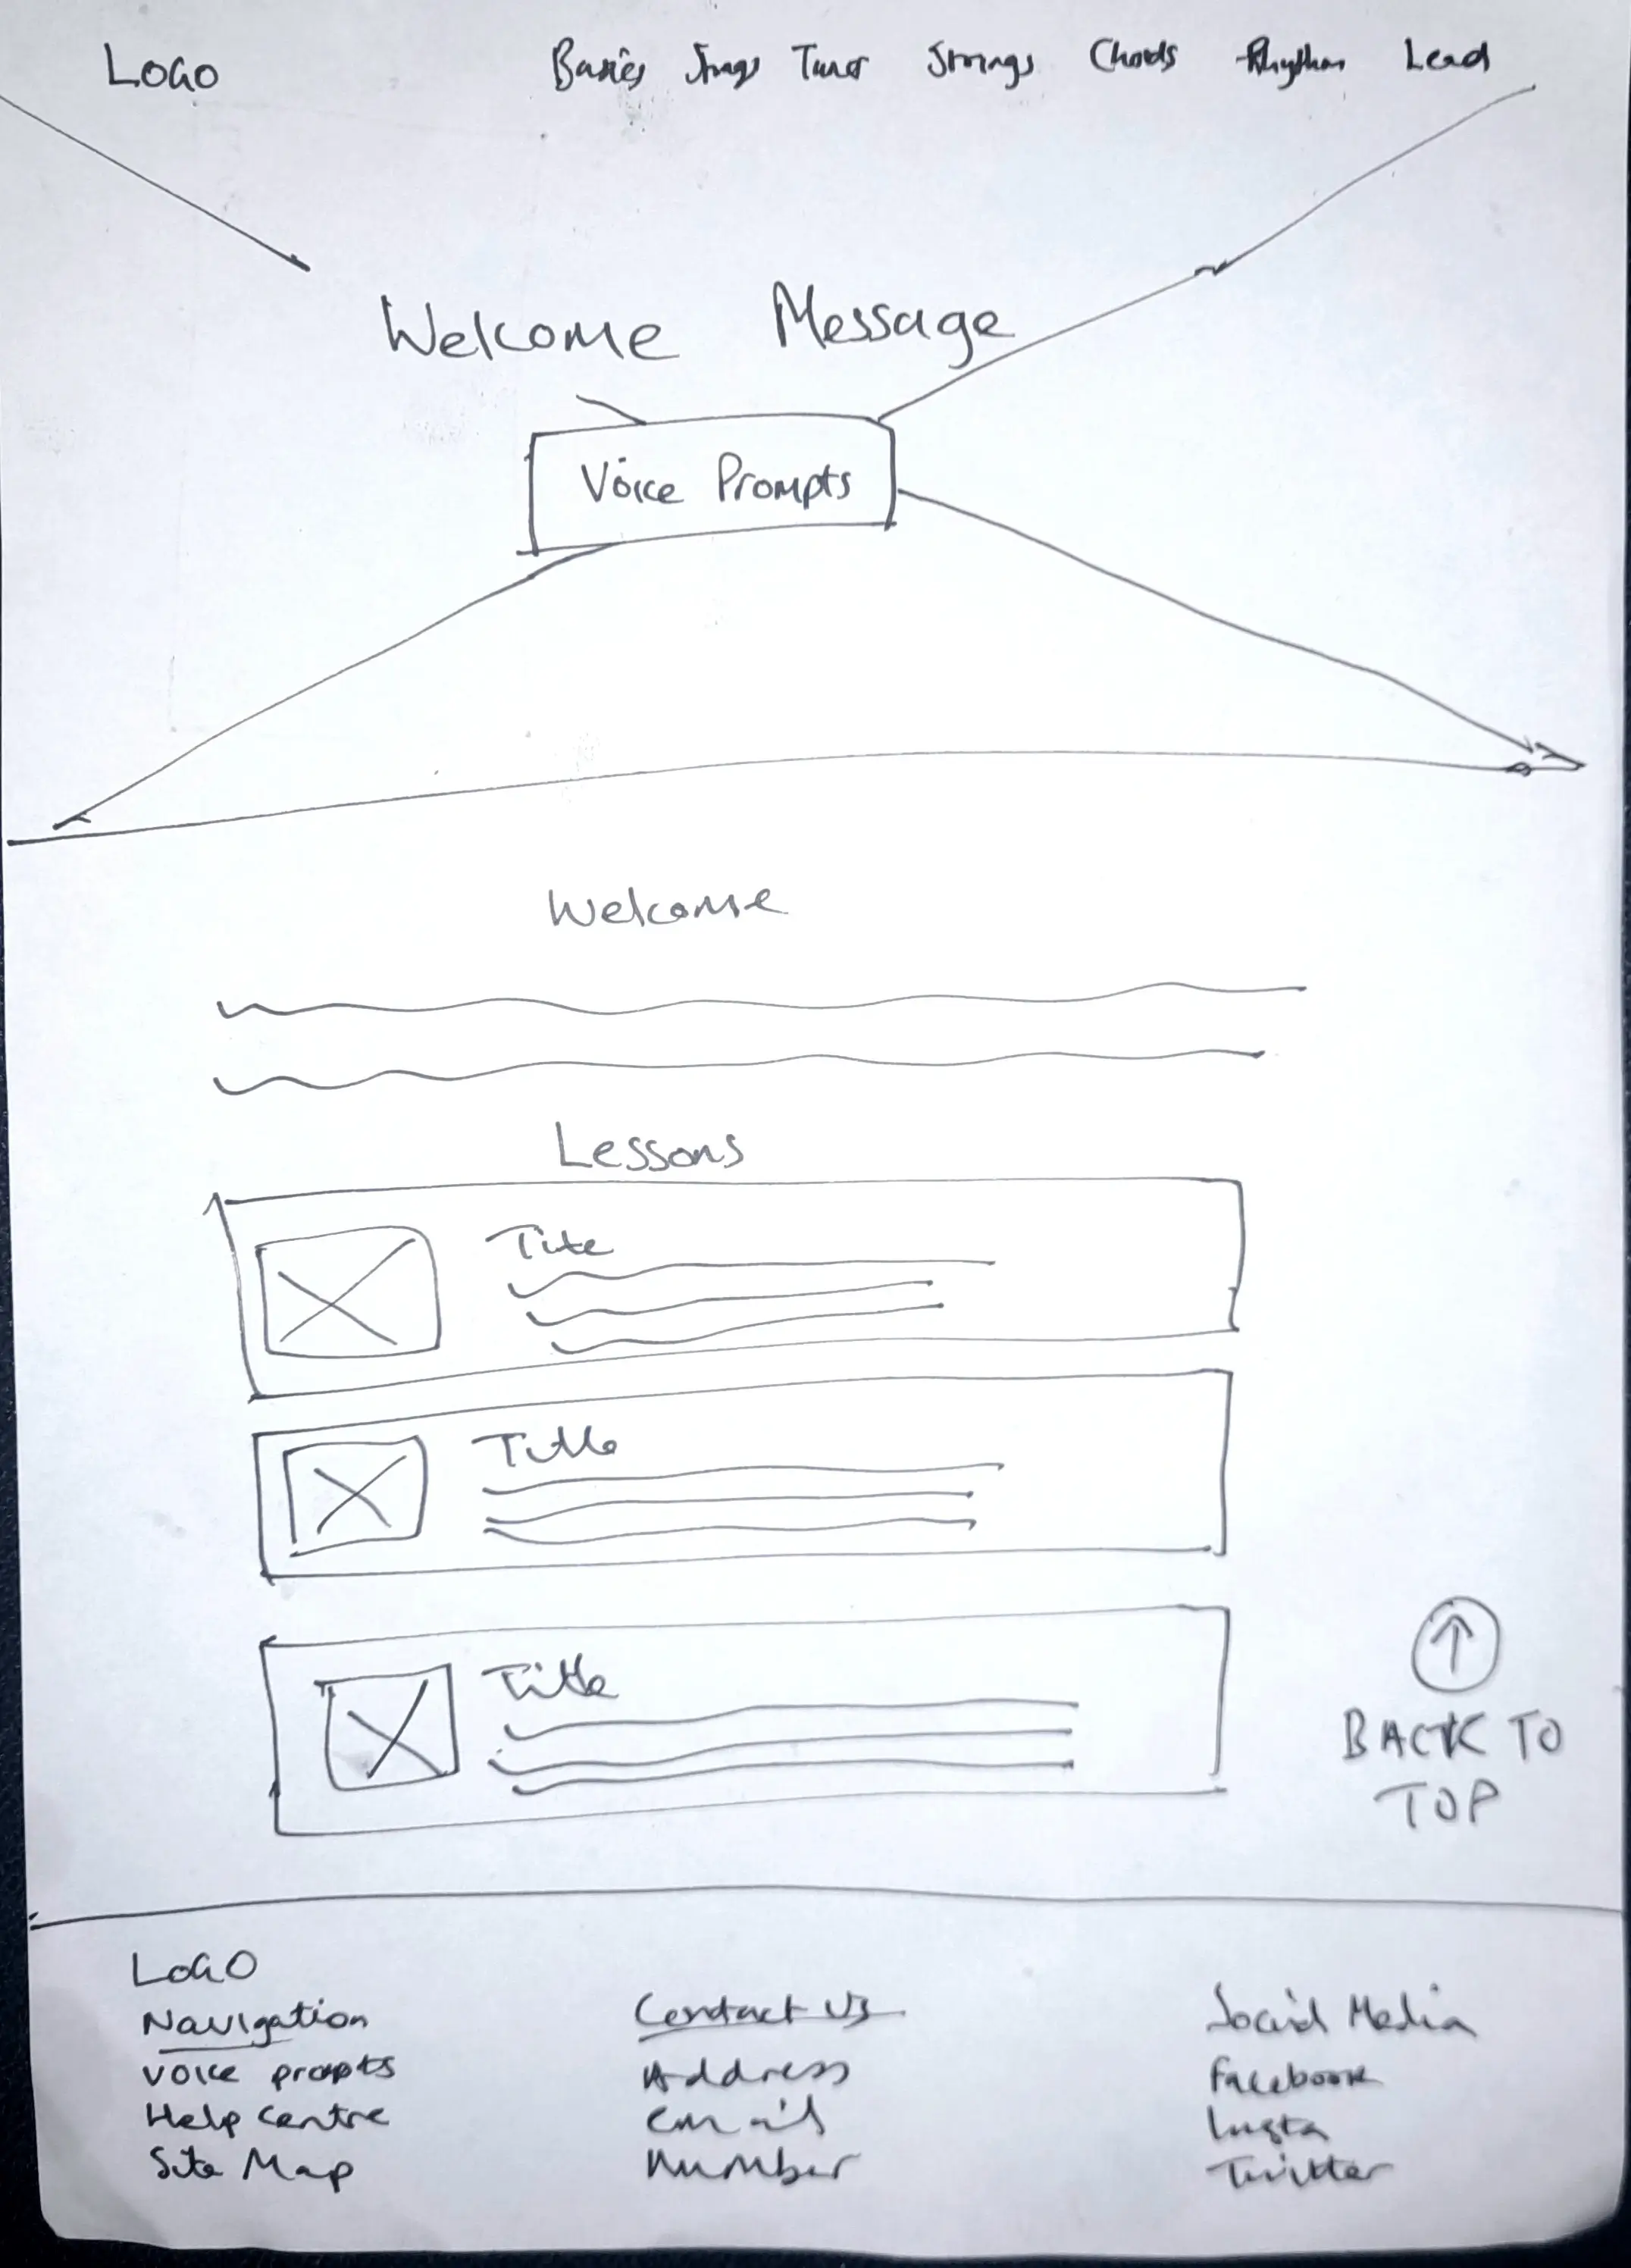 LOGO Basics Songs Tuner Strings Chords Rhythm Lead
Welcome Message
Voice Prompts
Welcome
Lessons
Title
Title
Title
BACK TO
TOP
LOGO
Navigation
Voice prompts
Help Centre
Site Map
Contact Us
Address
Email
Number
Social Media
Facebook
Insta
Twitter